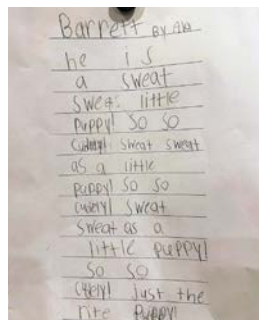 Barrett By Ava
he is
a sweat
sweat little
puppy! so so
sweat sweat
as a little
puppy! so so
sweat
sweat as a
little puppy!
so so
just the
rite puppy!